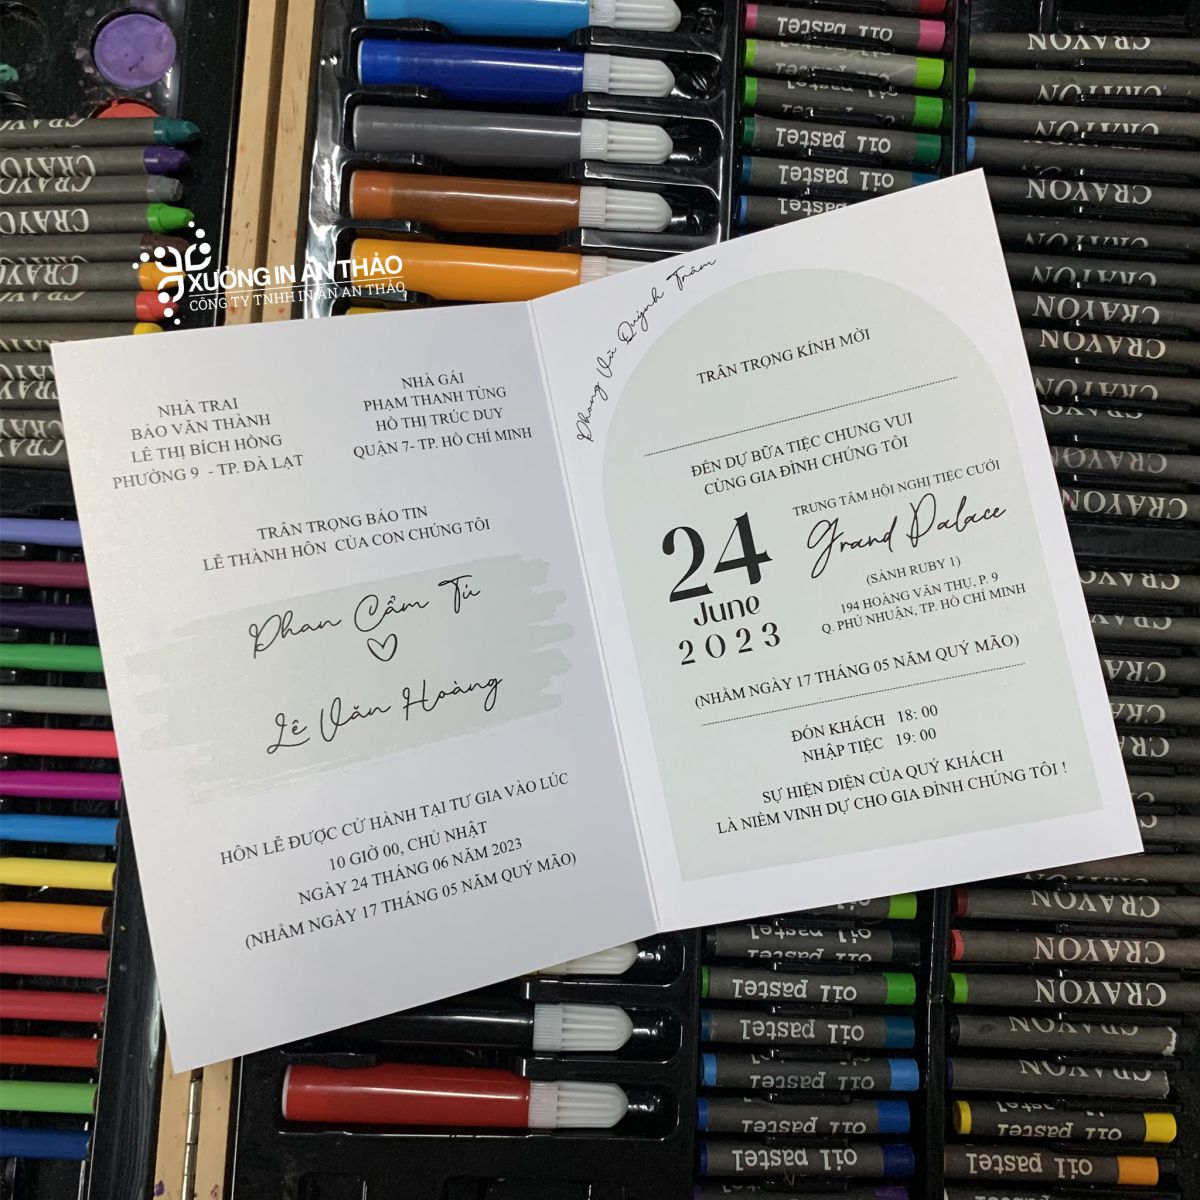 XƯỞNG IN ẤN THẢO
CÔNG TY TNHH IN ẤN AN THẢO
NHÀ TRAI
BẢO VĂN THÀNH
LÊ THỊ BÍCH HỒNG
PHƯỜNG 9 - TP. ĐÀ LẠT
NHÀ GÁI
PHẠM THANH TÙNG
HỒ THỊ TRÚC DUY
QUẬN 7- TP. HỒ CHÍ MINH
TRÂN TRỌNG BÁO TIN
LỄ THÀNH HÔN CỦA CON CHÚNG TÔI
Phan Cẩm Tú
Lê Văn Hoàng
HÔN LỄ ĐƯỢC CỬ HÀNH TẠI TƯ GIA VÀO LÚC
10 GIỜ 00, CHỦ NHẬT
NGÀY 24 THÁNG 06 NĂM 2023
(NHẰM NGÀY 17 THÁNG 05 NĂM QUÝ MÃO)
Phong Vũ Quỳnh Trâm
TRÂN TRỌNG KÍNH MỜI
ĐẾN DỰ BỮA TIỆC CHUNG VUI
CÙNG GIA ĐÌNH CHÚNG TÔI
TRUNG TÂM HỘI NGHỊ TIỆC CƯỚI
Grand Palace
(SẢNH RUBY 1)
194 HOÀNG VĂN THỤ, P. 9
Q. PHÚ NHUẬN, TP. HỒ CHÍ MINH
24
June
2023
(NHẰM NGÀY 17 THÁNG 05 NĂM QUÝ MÃO)
ĐÓN KHÁCH 18: 00
NHẬP TIỆC 19: 00
SỰ HIỆN DIỆN CỦA QUÝ KHÁCH
LÀ NIỀM VINH DỰ CHO GIA ĐÌNH CHÚNG TÔI !
CRAYON
CRAYON
CRAYON
CRAYON
CRAYON
CRAYON
oil pastel
oil pastel
oil pastel
oil pastel
CRAYON
CRAYON
CRAYON
CRAYON
CRAYON
CRAYON
CRAYON
CRAYON
oil pastel
oil pastel
oil pastel
oil pastel
oil pastel
CRAYON
CRAYON
CRAYON
CRAYON
oil pastel
oil pastel